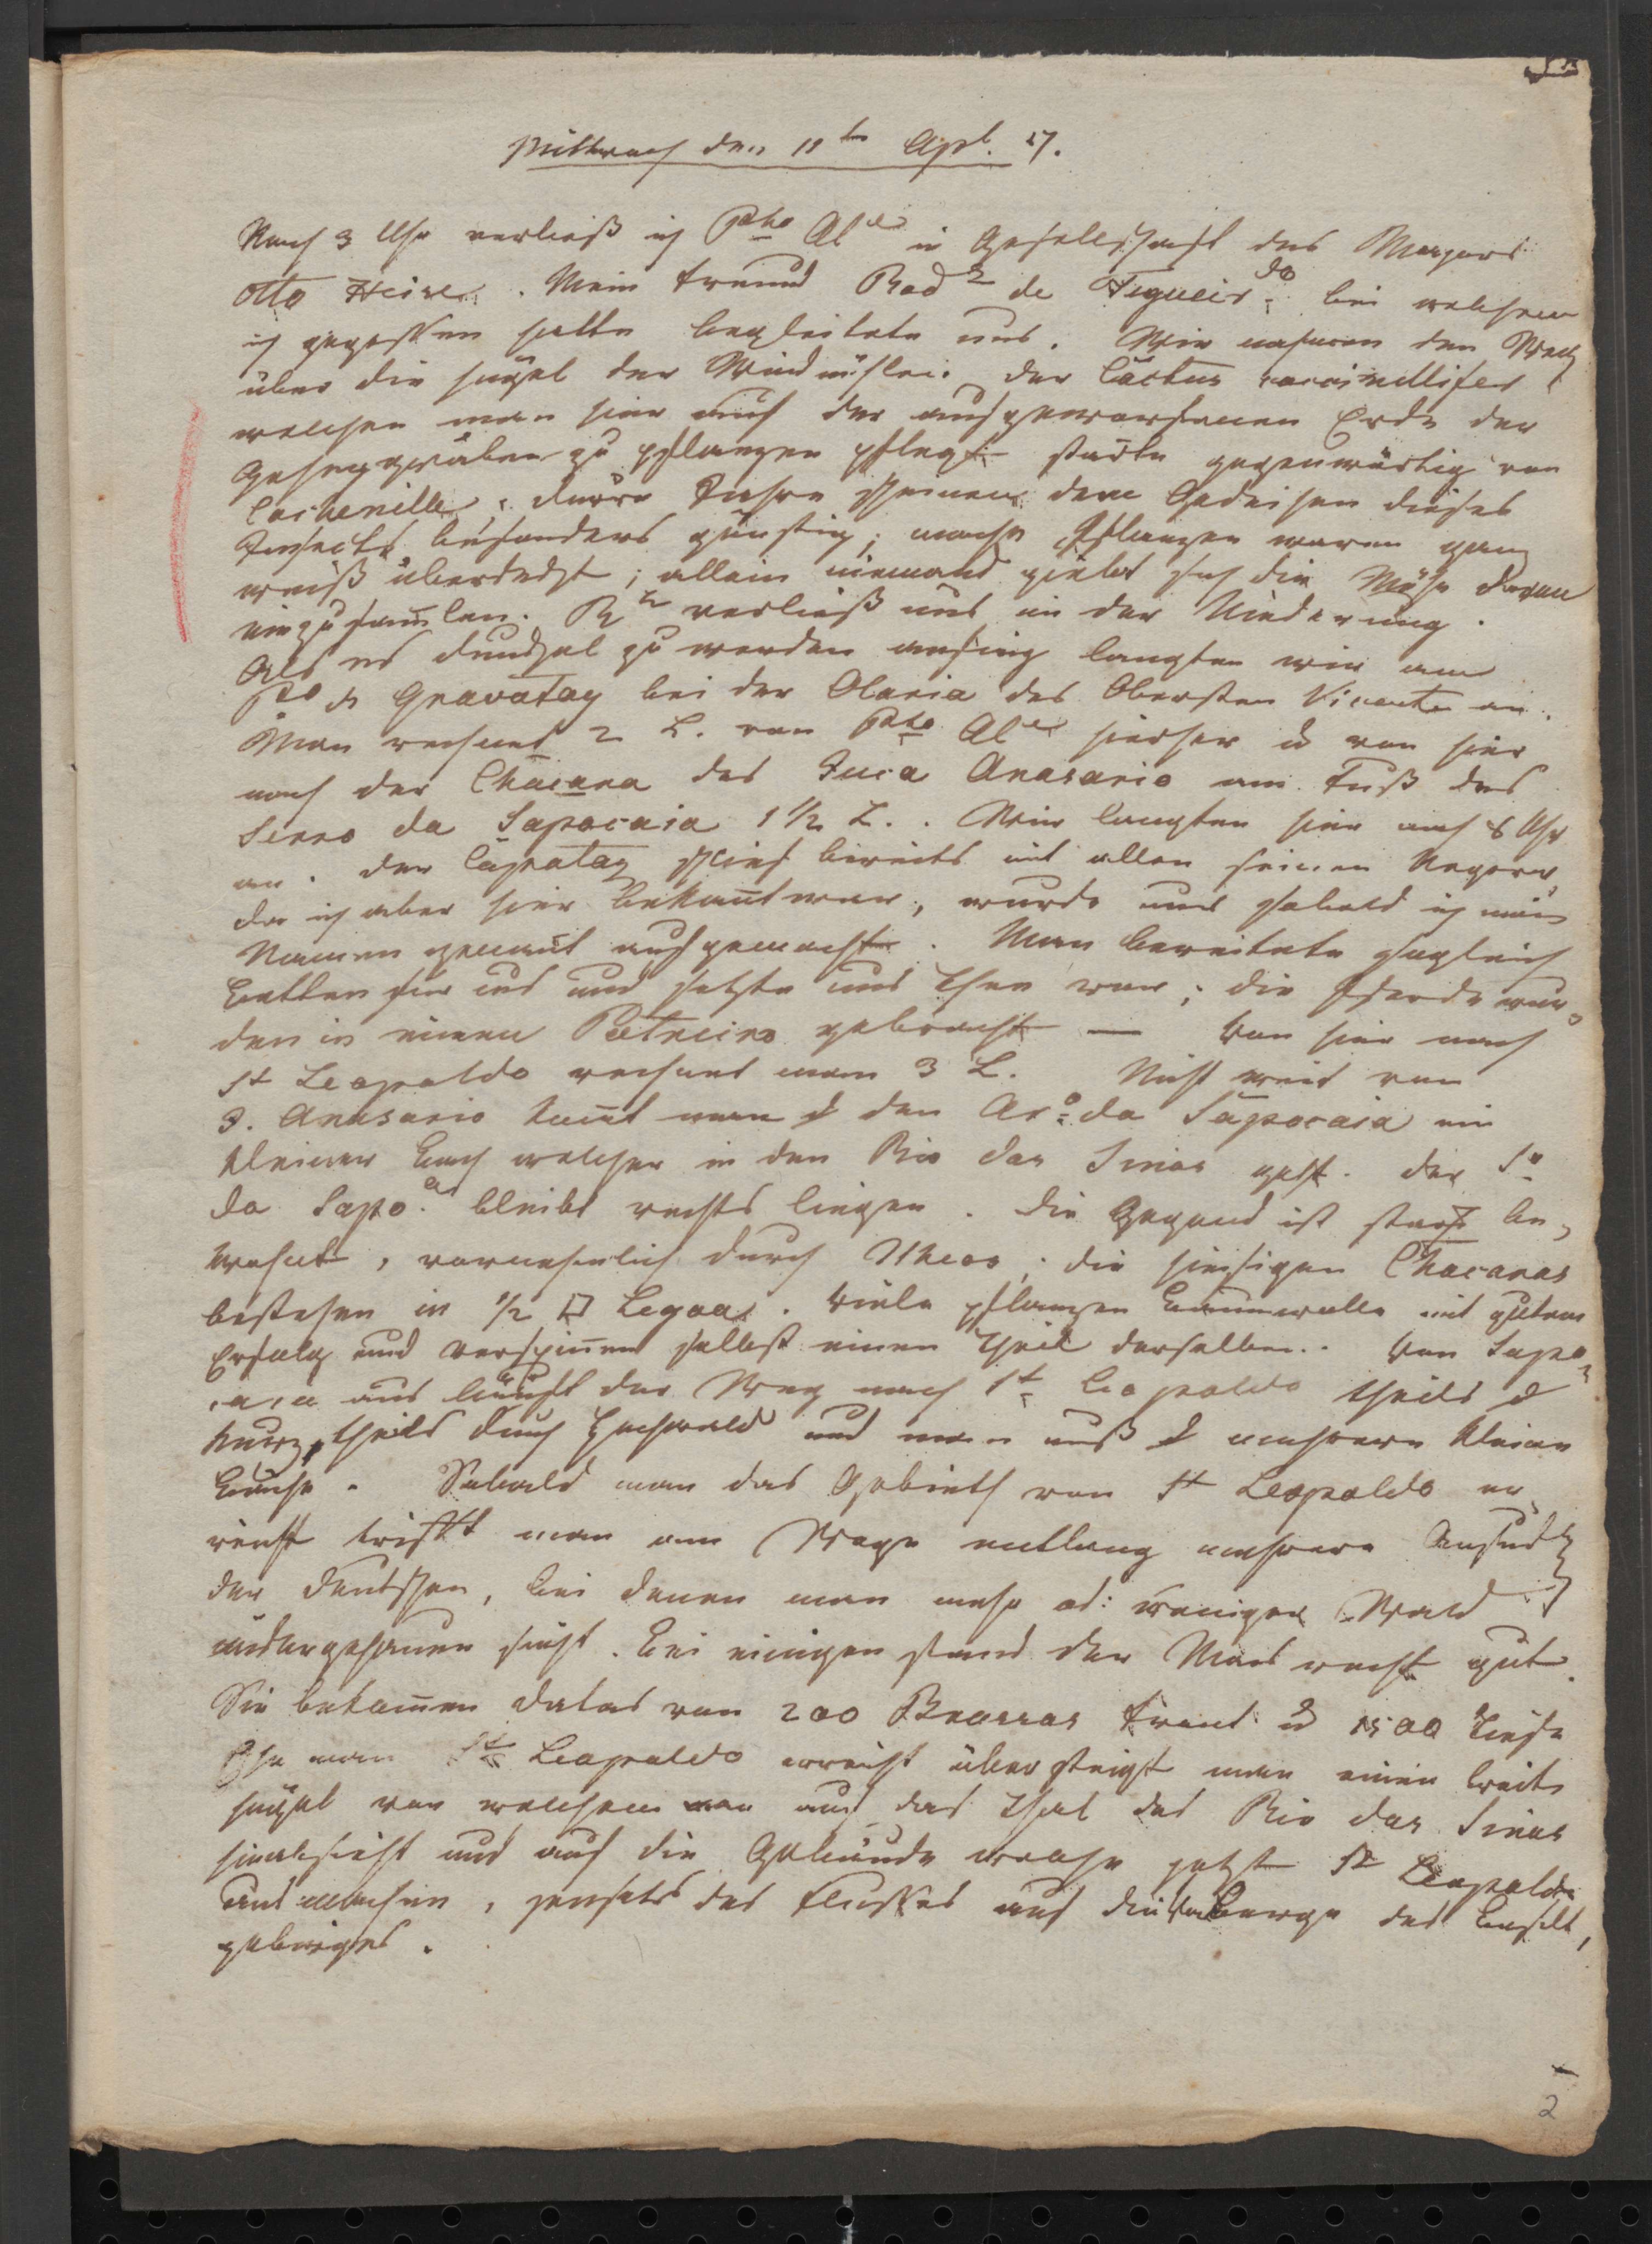 Mittwoch den 11ten Apl. 27.
Nach 3 Uhr verließ ich Pto Ale in Gesellschaft des Majors
Otto Heise. Mein Freund Rodz de Figueirdo bei welchem
ich gegessen hatte begleitete uns. Wir nahmen den Weg
über die Hügel der Windmühlen. Der Cactus coccinellifer
welchen man hier auf der aufgeworfenen Erde der
Gehegegräben zu pflanzen pflegt starte gegenwärtig von
Cochenille, dürre Jahre scheinen dem Gedeihen dieses
Insects besonders günstig; manche Pflanzen waren ganz
weiß überdeckt; allein niemand giebt sich die Mühe davon
einzusam̄len. Rz verließ uns in der Niederung.
Als es dunckel zu werden anfing langten wir am
Po de Gravatay bei der Olaria des Obersten Vicente an.
Man rechnet 2 L. von Pto Ale hierher u von hier
nach der Chacara des Juca Anasario am Fuß des
Serro da Sapocaia 1 1/2 L.. Wir langten hier nach 8 Uhr
an. Der Capatay schlief bereits mit allen seinen Negern,
da ich aber hier bekan̄t war, wurde uns sobald ich mein
Namen genan̄t aufgemacht. Man bereitete sogleich
Betten für uns und setzte uns Thee vor; die Pferde wur-
den in einen Potreiro gebracht — Von hier nach
St Leopoldo rechnet man 3 L. Nicht weit von
J. Anasario kom̄t man d den Aro da Sapocaia ein
kleiner Bach welcher in den Rio dos Sinos geht. Der So
da Sapoa bleibt rechts liegen. Die Gegend ist starck be-
wohnt, vornehmlich durch Ilheos; die hiesigen Chacaras
bestehen in 1/2 □ Legoa. Viele pflanzen Baumwolle mit gutem
Erfolg und verspin̄en selbst einen Theil derselben. Von Sapo-
caia aus läuft der Weg nach St Leopoldo theils d
kurz, theils durch Hochwald und man muß d mehrere kleine
Bäche. Sobald man das Gebieth von St Leopoldo er
reicht trifft man am Wege entlang mehrere Ansied
der Deutschen, bei denen man mehr od: weniger Wald
niedergehauen sieht. Bei einigen stand der Mais recht gut.
Sie bekam̄en datas von 200 Brassas Front u 1500 Tiefe
Ehe man St Leopoldo erreicht übersteigt man einen breiten
Hügel von welchem man auf das Thal des Rio dos Sinos
hinabsieht und auf die Gebäude welche jetzt St Leopoldo
ausmachen, jenseits des Flusses auf die Berge des Basalt,
gebirges.
2